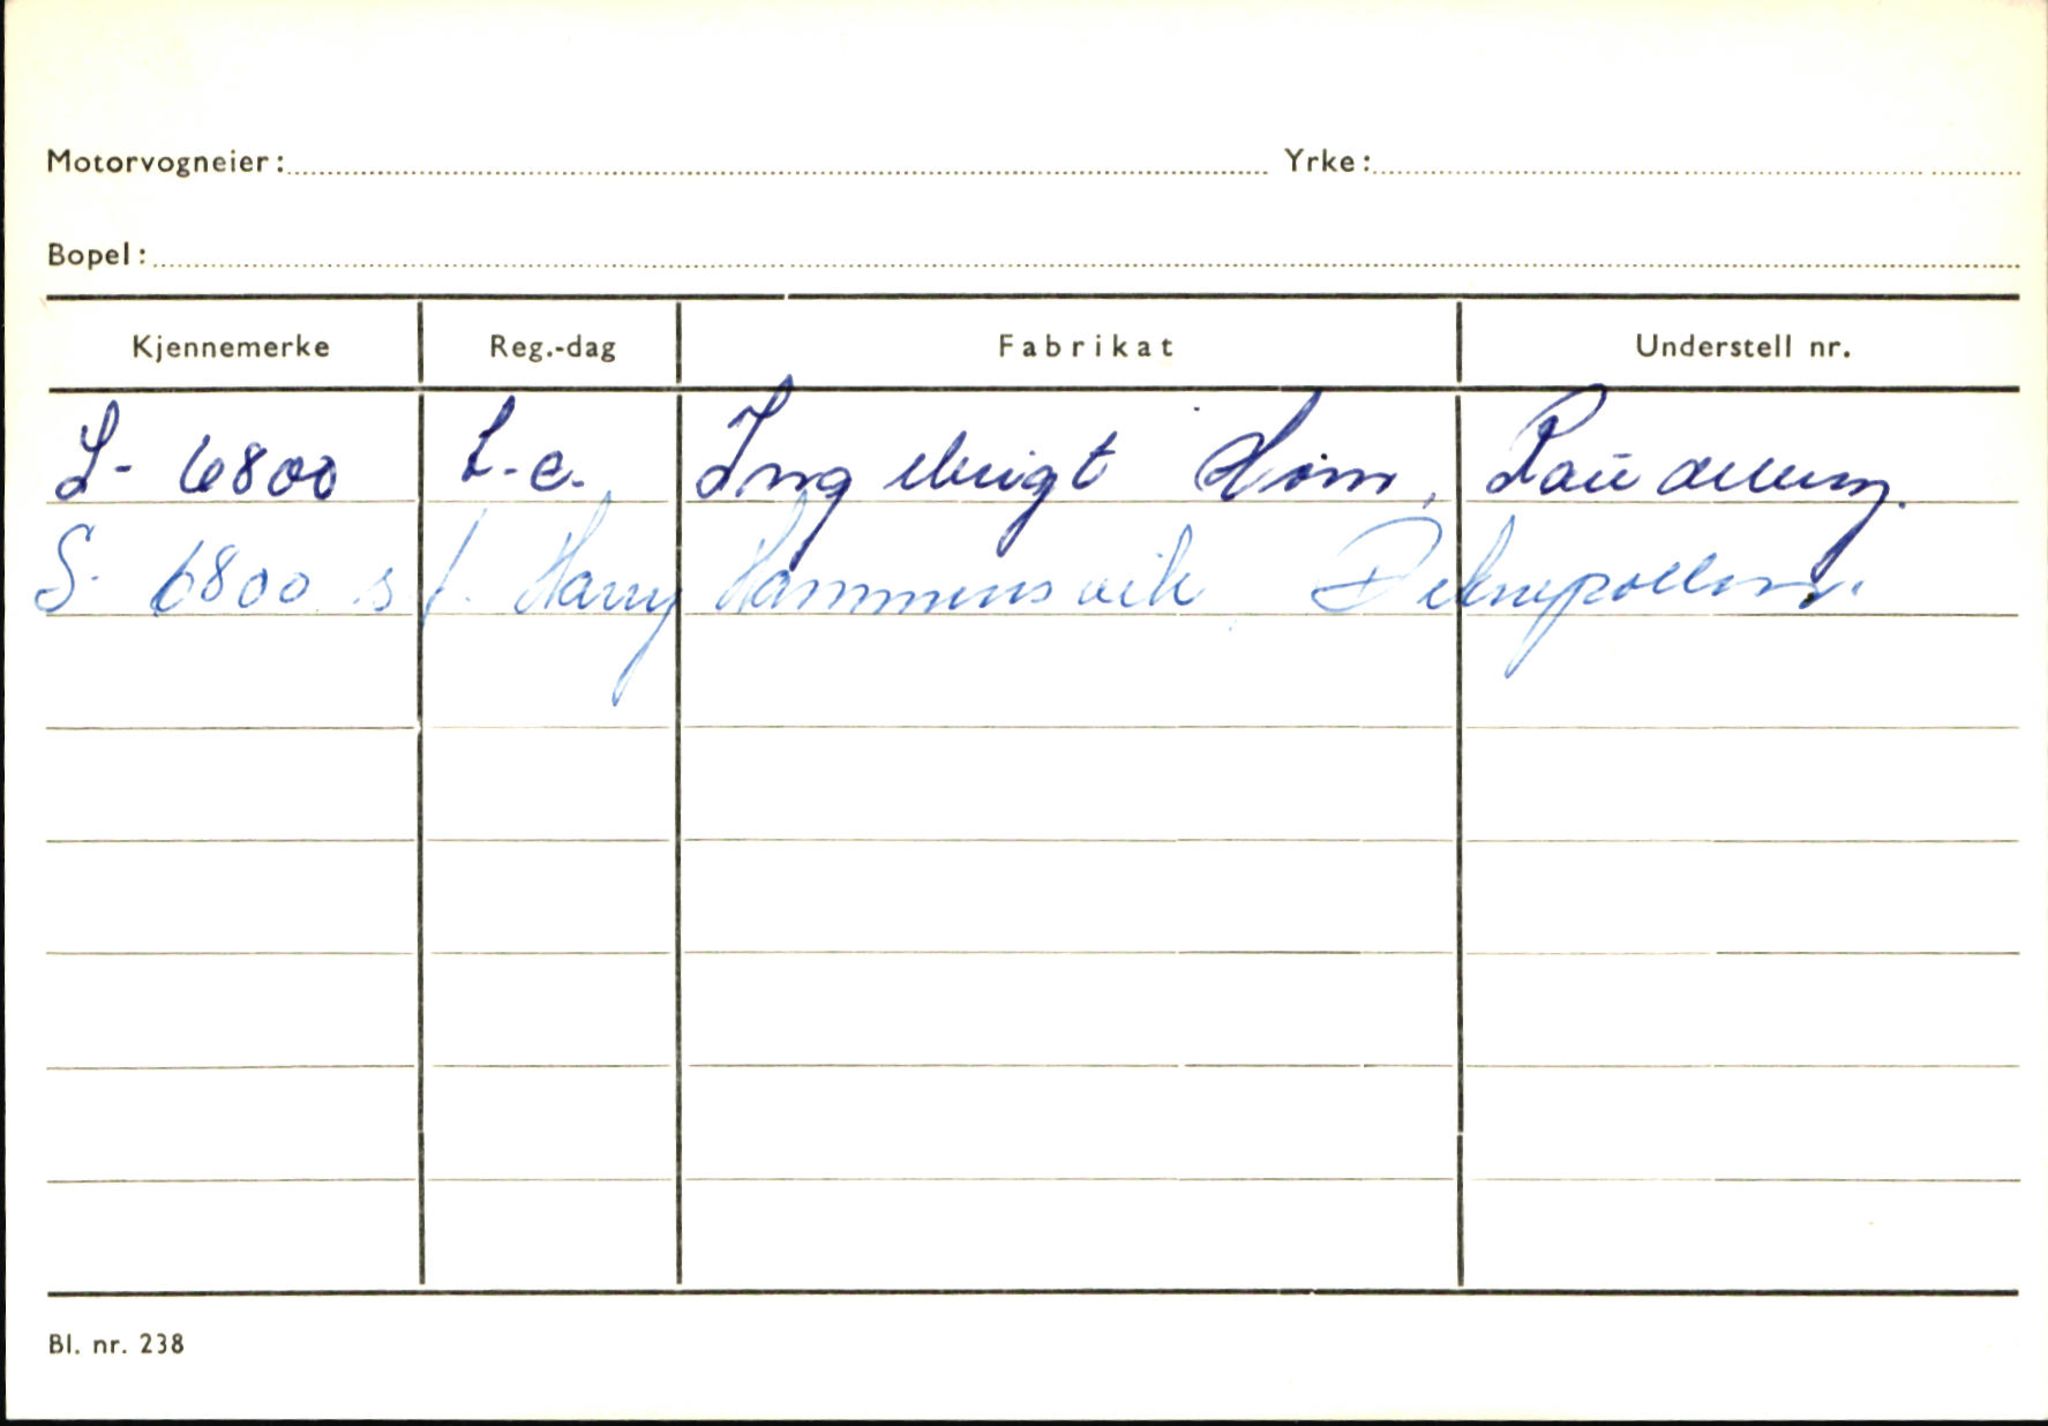 Motorvogneier: Yrke:
Bopel:
Kjennemerke Reg.-dag Fabrikat Understell nr.
S- 6800 L.c. Ingebrigt
S- 6800 s/f. Harry Hammersvik, Deknepollen.
Bl. nr. 238